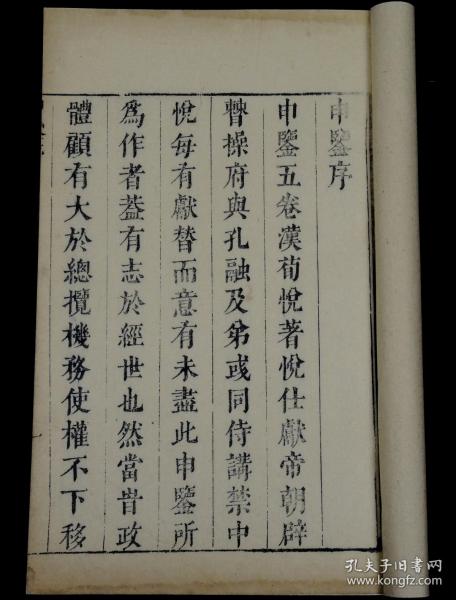 申鑒序
申鑒五卷漢荀悅著悅仕獻帝朝辟
朁操府與孔融及弟彧同侍講禁中
悅每有獻替而意有未盡此申鑒所
爲作者葢有志於經世也然當昔政
體顧有大於總攬機務使權不下移
孔夫子旧书网
www.kongfz.com